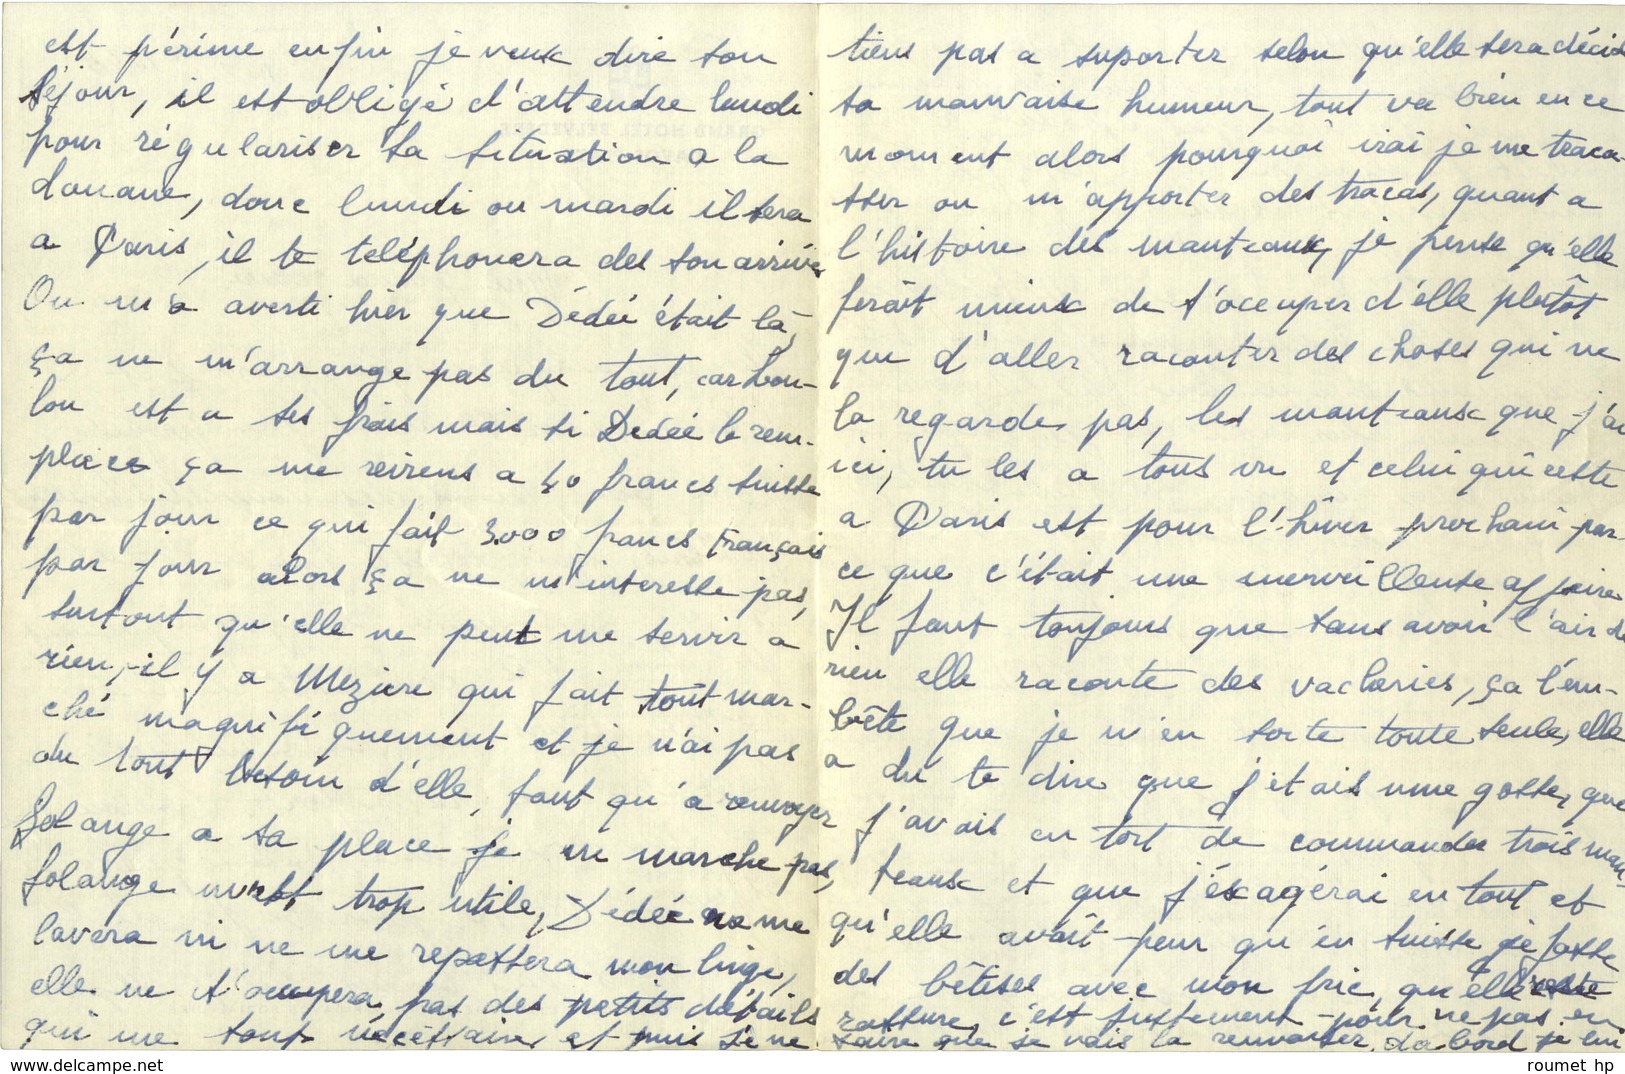 est périme enfin je veux dire son
séjour, il est obligé d'attendre lundi
pour régulariser sa situation a la
douane, donc lundi ou mardi il sera
a Paris, il te téléphonera des son arrivé
On m'a averti hier que Dédée était là,
ça ne m'arrange pas du tout, car Lou-
lou est a ses frais mais si Dédée le rem-
place ça me reviens a 40 francs suisse
par jour ce qui fait 3.000 francs Français
par jour alors ça ne m'interesse pas,
surtout qu'elle ne peut me servir a
rien, il y a Meziere qui fait tout mar-
ché magnifiquement et je n'ai pas
du tout besoin d'elle, tant qu'a renvoyer
Solange a sa place je ne marche pas,
Solange m'est trop utile, Dédée ne me
lavera ni ne me repassera mon linge,
elle ne s'occupera pas des petits détails
qui me sont nécéssaires et puis je ne
tiens pas a suporter selon qu'elle sera décidé
sa mauvaise humeur, tout va bien en ce
moment alors pourquoi irai je me traca-
sser ou m'apporter des tracas, quant a
l'histoire des manteaux, je pense qu'elle
ferait mieux de s'occuper d'elle plutôt
que d'aller raconter des choses qui ne
la regarde pas, les manteaux que j'ai
ici, tu les a tous vu et celui qui reste
a Paris est pour l'hiver prochain par-
ce que c'était une merveilleuse affaire
Il faut toujours que sans avoir l'air de
rien elle raconte des vacheries, ça l'em-
bête que je m'en sorte toute seule, elle
a du te dire que j'etais une gosse, que
j'avais eu tort de commander trois man-
teaux et que j'éxagérai en tout et
qu'elle avait peur qu'en suisse je fasse
des bêtises avec mon fric, qu'elle reste
rassure, c'est justement pour ne pas en
faire que je vais la renvoyer. Da bord je lui
roumet hp